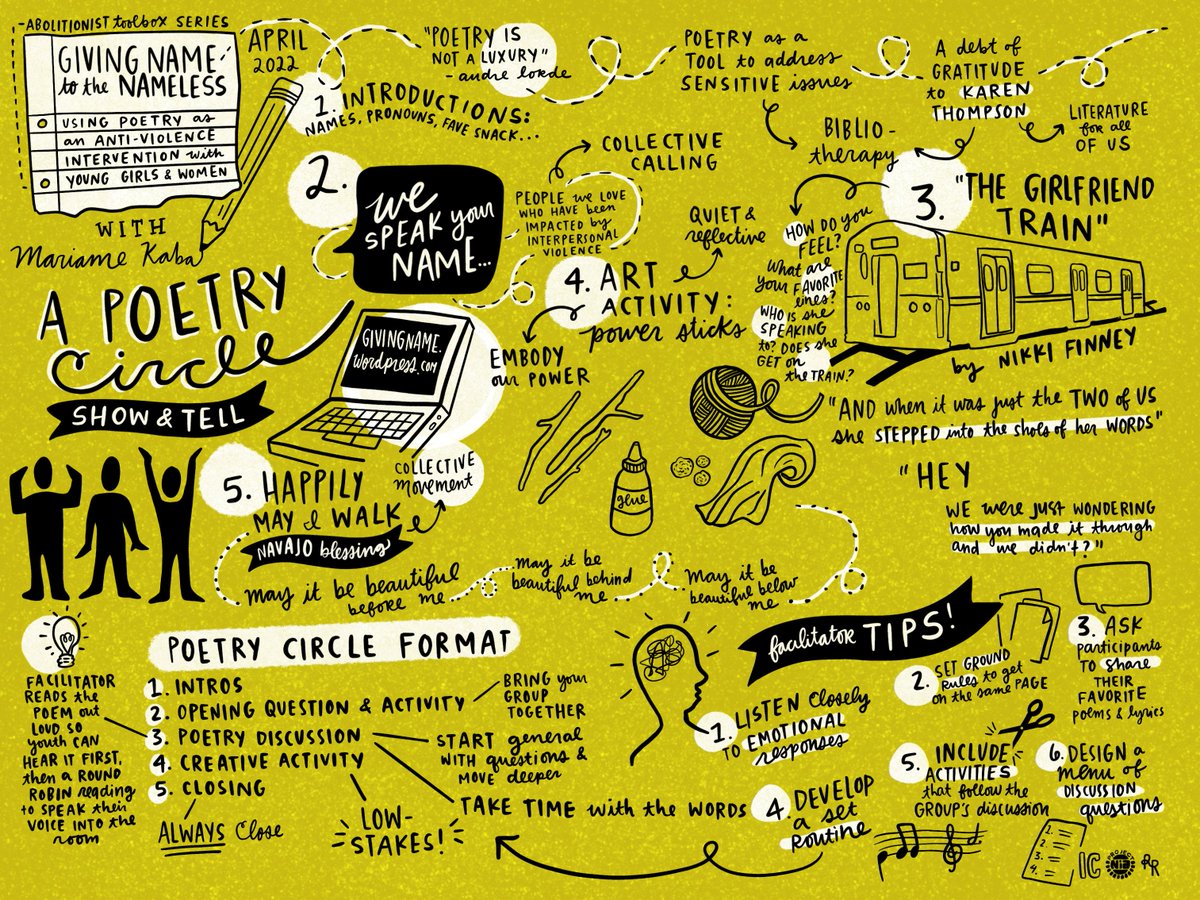 -ABOLITIONIST toolbox SERIES
GIVING NAME
to the NAMELESS
USING POETRY as
an ANTI-VIOLENCE
INTERVENTION with
YOUNG GIRLS & WOMEN
WITH
Mariame Kaba
APRIL
2022
"POETRY IS
NOT A LUXURY"
- audre lorde
POETRY as a
TOOL to address
SENSITIVE issues
A debt of
GRATITUDE
to KAREN
THOMPSON
LITERATURE
for all
OF US
BIBLIO-
therapy
A POETRY
Circle
SHOW & TELL
1. INTRODUCTIONS:
NAMES, PRONOUNS, FAVE SNACK...
2.
We
SPEAK your
NAME...
COLLECTIVE
CALLING
PEOPLE we LOVE
WHO HAVE been
IMPACTED by
INTERPERSONAL
VIOLENCE
GIVINGNAME.
wordpress.com
3. "THE GIRLFRIEND
TRAIN"
by NIKKI FINNEY
HOW DO you
FEEL?
What are
your FAVORITE
lines?
WHO is she
SPEAKING
to? DOES she
GET on
the TRAIN?
"AND when it was just the TWO of US
she STEPPED into the shols of her WORDS"
"HEY
WE were JUST WONDERING
how you made it through
and we didn't?"
4. ART
ACTIVITY:
power sticks
QUIET &
reflective
EMBODY
our POWER
glue
5. HAPPILY
MAY I WALK
NAVAJO blessing
COLLECTIVE
movement
May it be beautiful
before me
May it be
beautiful behind
me
May it be
beautiful below
me
POETRY CIRCLE FORMAT
1. INTROS
2. OPENING QUESTION & ACTIVITY
3. POETRY DISCUSSION
4. CREATIVE ACTIVITY
5. CLOSING
FACILITATOR
READS the
POEM out
LOUD so
youth CAN
HEAR IT FIRST,
then a ROUND
ROBIN reading
to SPEAK their
VOICE INTO the
room
BRING your
GROUP
TOGETHER
START general
WITH questions &
MOVE deeper
TAKE TIME with the WORDS
LOW-
STAKES!
ALWAYS Close
facilitator TIPS!
1. LISTEN Closely
TO EMOTIONAL
responses
2. SET GROUND
RULES to get
on the same PAGE
3. ASK
participants
TO share
THEIR
FAVORITE
poems & lyrics
4. DEVELOP
a set
ROUTINE
5. INCLUDE
ACTIVITIES
that follow the
GROUP'S discussion
6. DESIGN a
menu of
DISCUSSION
questions
1.
2.
3.
4.
IC
PROJECT
NIA
RR